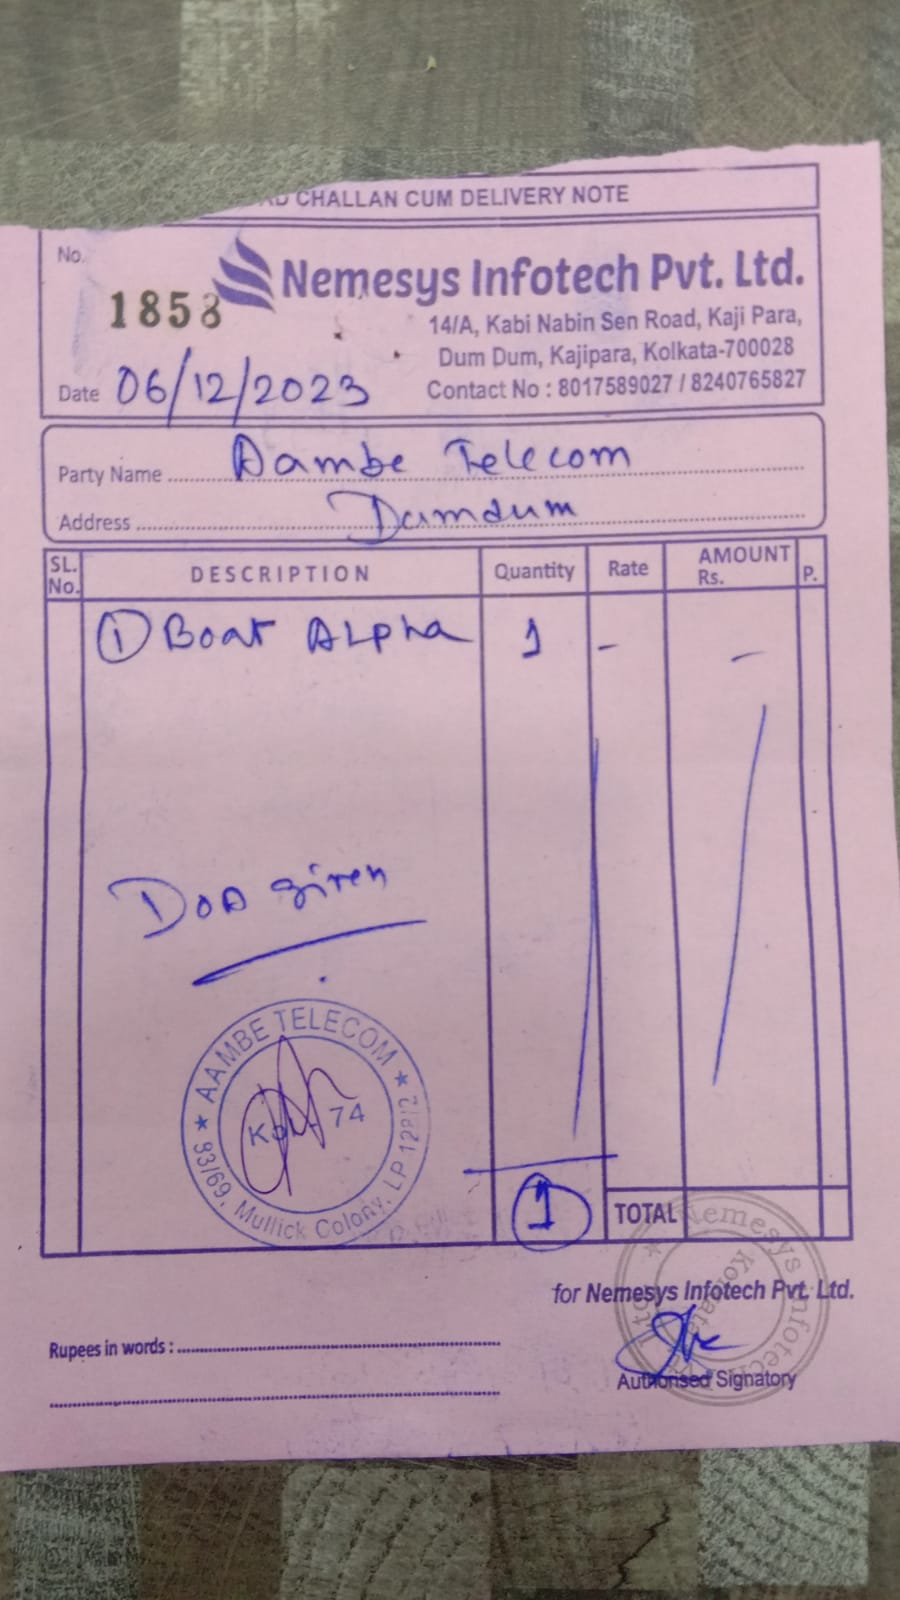 CHALLAN CUM DELIVERY NOTE
No.
1858
Nemesys Infotech Pvt. Ltd.
14/A, Kabi Nabin Sen Road, Kaji Para,
Dum Dum, Kajipara, Kolkata-700028
Contact No : 8017589027 / 8240765827
Date 06/12/2023
Party Name Aambe Telecom
Address Dumdum
SL. No. DESCRIPTION Quantity Rate AMOUNT Rs. P.
① Boat Alpha 1 - -
DOA given
★ AAMBE TELECOM ★
74
93/69, Mullick Colony, LP
1
TOTAL
Nemesys Infotech
for Nemesys Infotech Pvt. Ltd.
Rupees in words :
Authorised Signatory